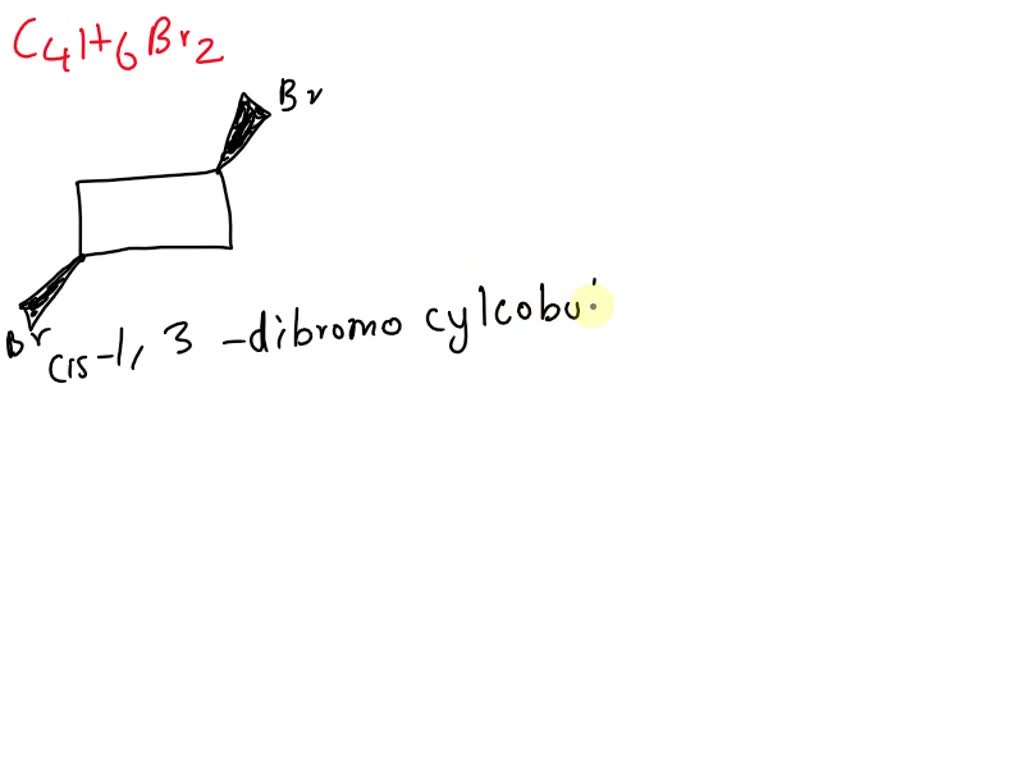 C4H6Br2
Br
Br
cis-1, 3 -dibromo cylcobu